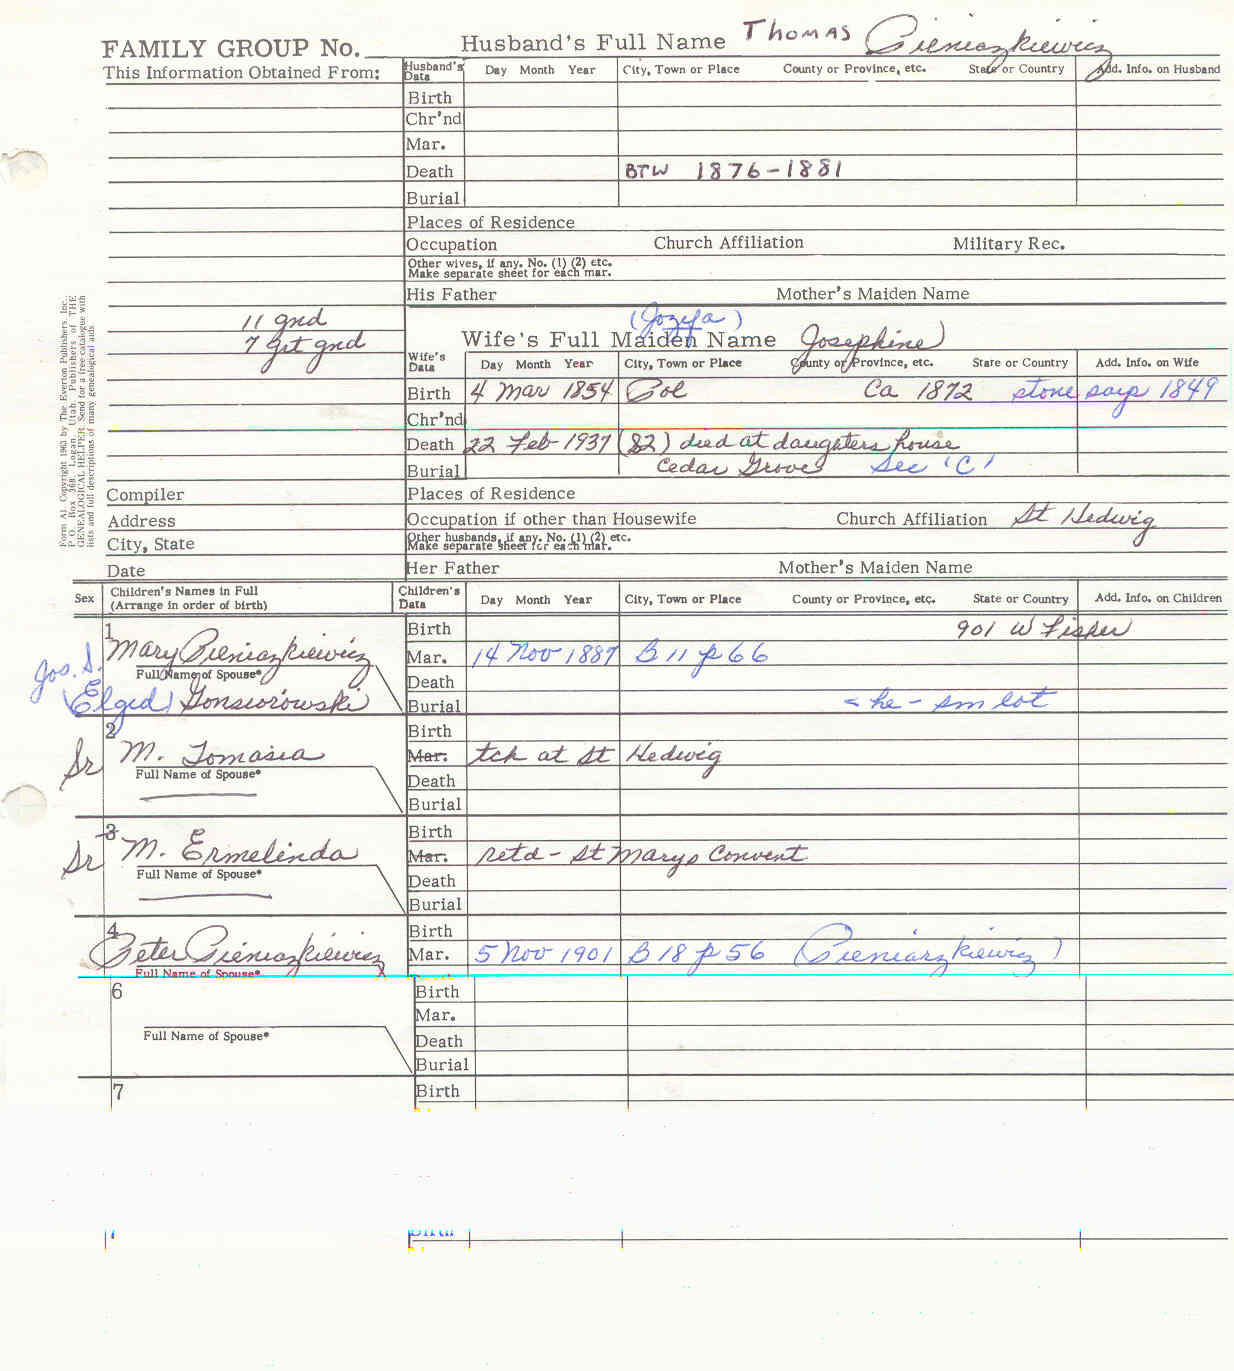 FAMILY GROUP No. Husband's Full Name THOMAS Pieniazkiewicz
This Information Obtained From: Husband's Data Day Month Year City, Town or Place County or Province, etc. State or Country Add. Info. on Husband
Birth
Chr'nd
Mar.
Death BTW 1876-1881
Burial
Places of Residence
Occupation Church Affiliation Military Rec.
Other wives, if any. No. (1) (2) etc.
Make separate sheet for each mar.
His Father Mother's Maiden Name
11 gnd
7 grt gnd
(Jozefa)
Wife's Full Maiden Name Josephine
Wife's Data Day Month Year City, Town or Place County or Province, etc. State or Country Add. Info. on Wife
Birth 4 Mar 1854 Pol Ca 1872 stone says 1849
Chr'nd
Death 22 Feb 1937 (82) died at daughters house
Burial Cedar Grove Sec 'C'
Form A1. Copyright 1963 by The Everton Publishers, Inc.,
P. O. Box 368, Logan, Utah. Publishers of THE
GENEALOGICAL HELPER. Send for a free catalogue with
lists and full descriptions of many genealogical aids.
Compiler Places of Residence
Address Occupation if other than Housewife Church Affiliation St Hedwig
City, State Other husbands, if any. No. (1) (2) etc.
Make separate sheet for each mar.
Date Her Father Mother's Maiden Name
Sex Children's Names in Full
(Arrange in order of birth) Children's Data Day Month Year City, Town or Place County or Province, etc. State or Country Add. Info. on Children
1 Birth 901 W Fisher
Mary Pieniazkiewicz Mar. 14 Nov 1887 B 11 p 66
Jos. S. Full Name of Spouse* Death
(Elgid) Gonsiorowski Burial = he - sm lot
2 Birth
Sr M. Tomasia Mar. tch at St Hedwig
Full Name of Spouse* Death
Burial
3 Birth
Sr M. Ermelinda Mar. retd - St Marys Convent
Full Name of Spouse* Death
Burial
4 Birth
Peter Pieniazkiewicz Mar. 5 Nov 1901 B 18 p 56 (Pieniarzkiewicz)
Full Name of Spouse*
6 Birth
Mar.
Full Name of Spouse* Death
Burial
7 Birth